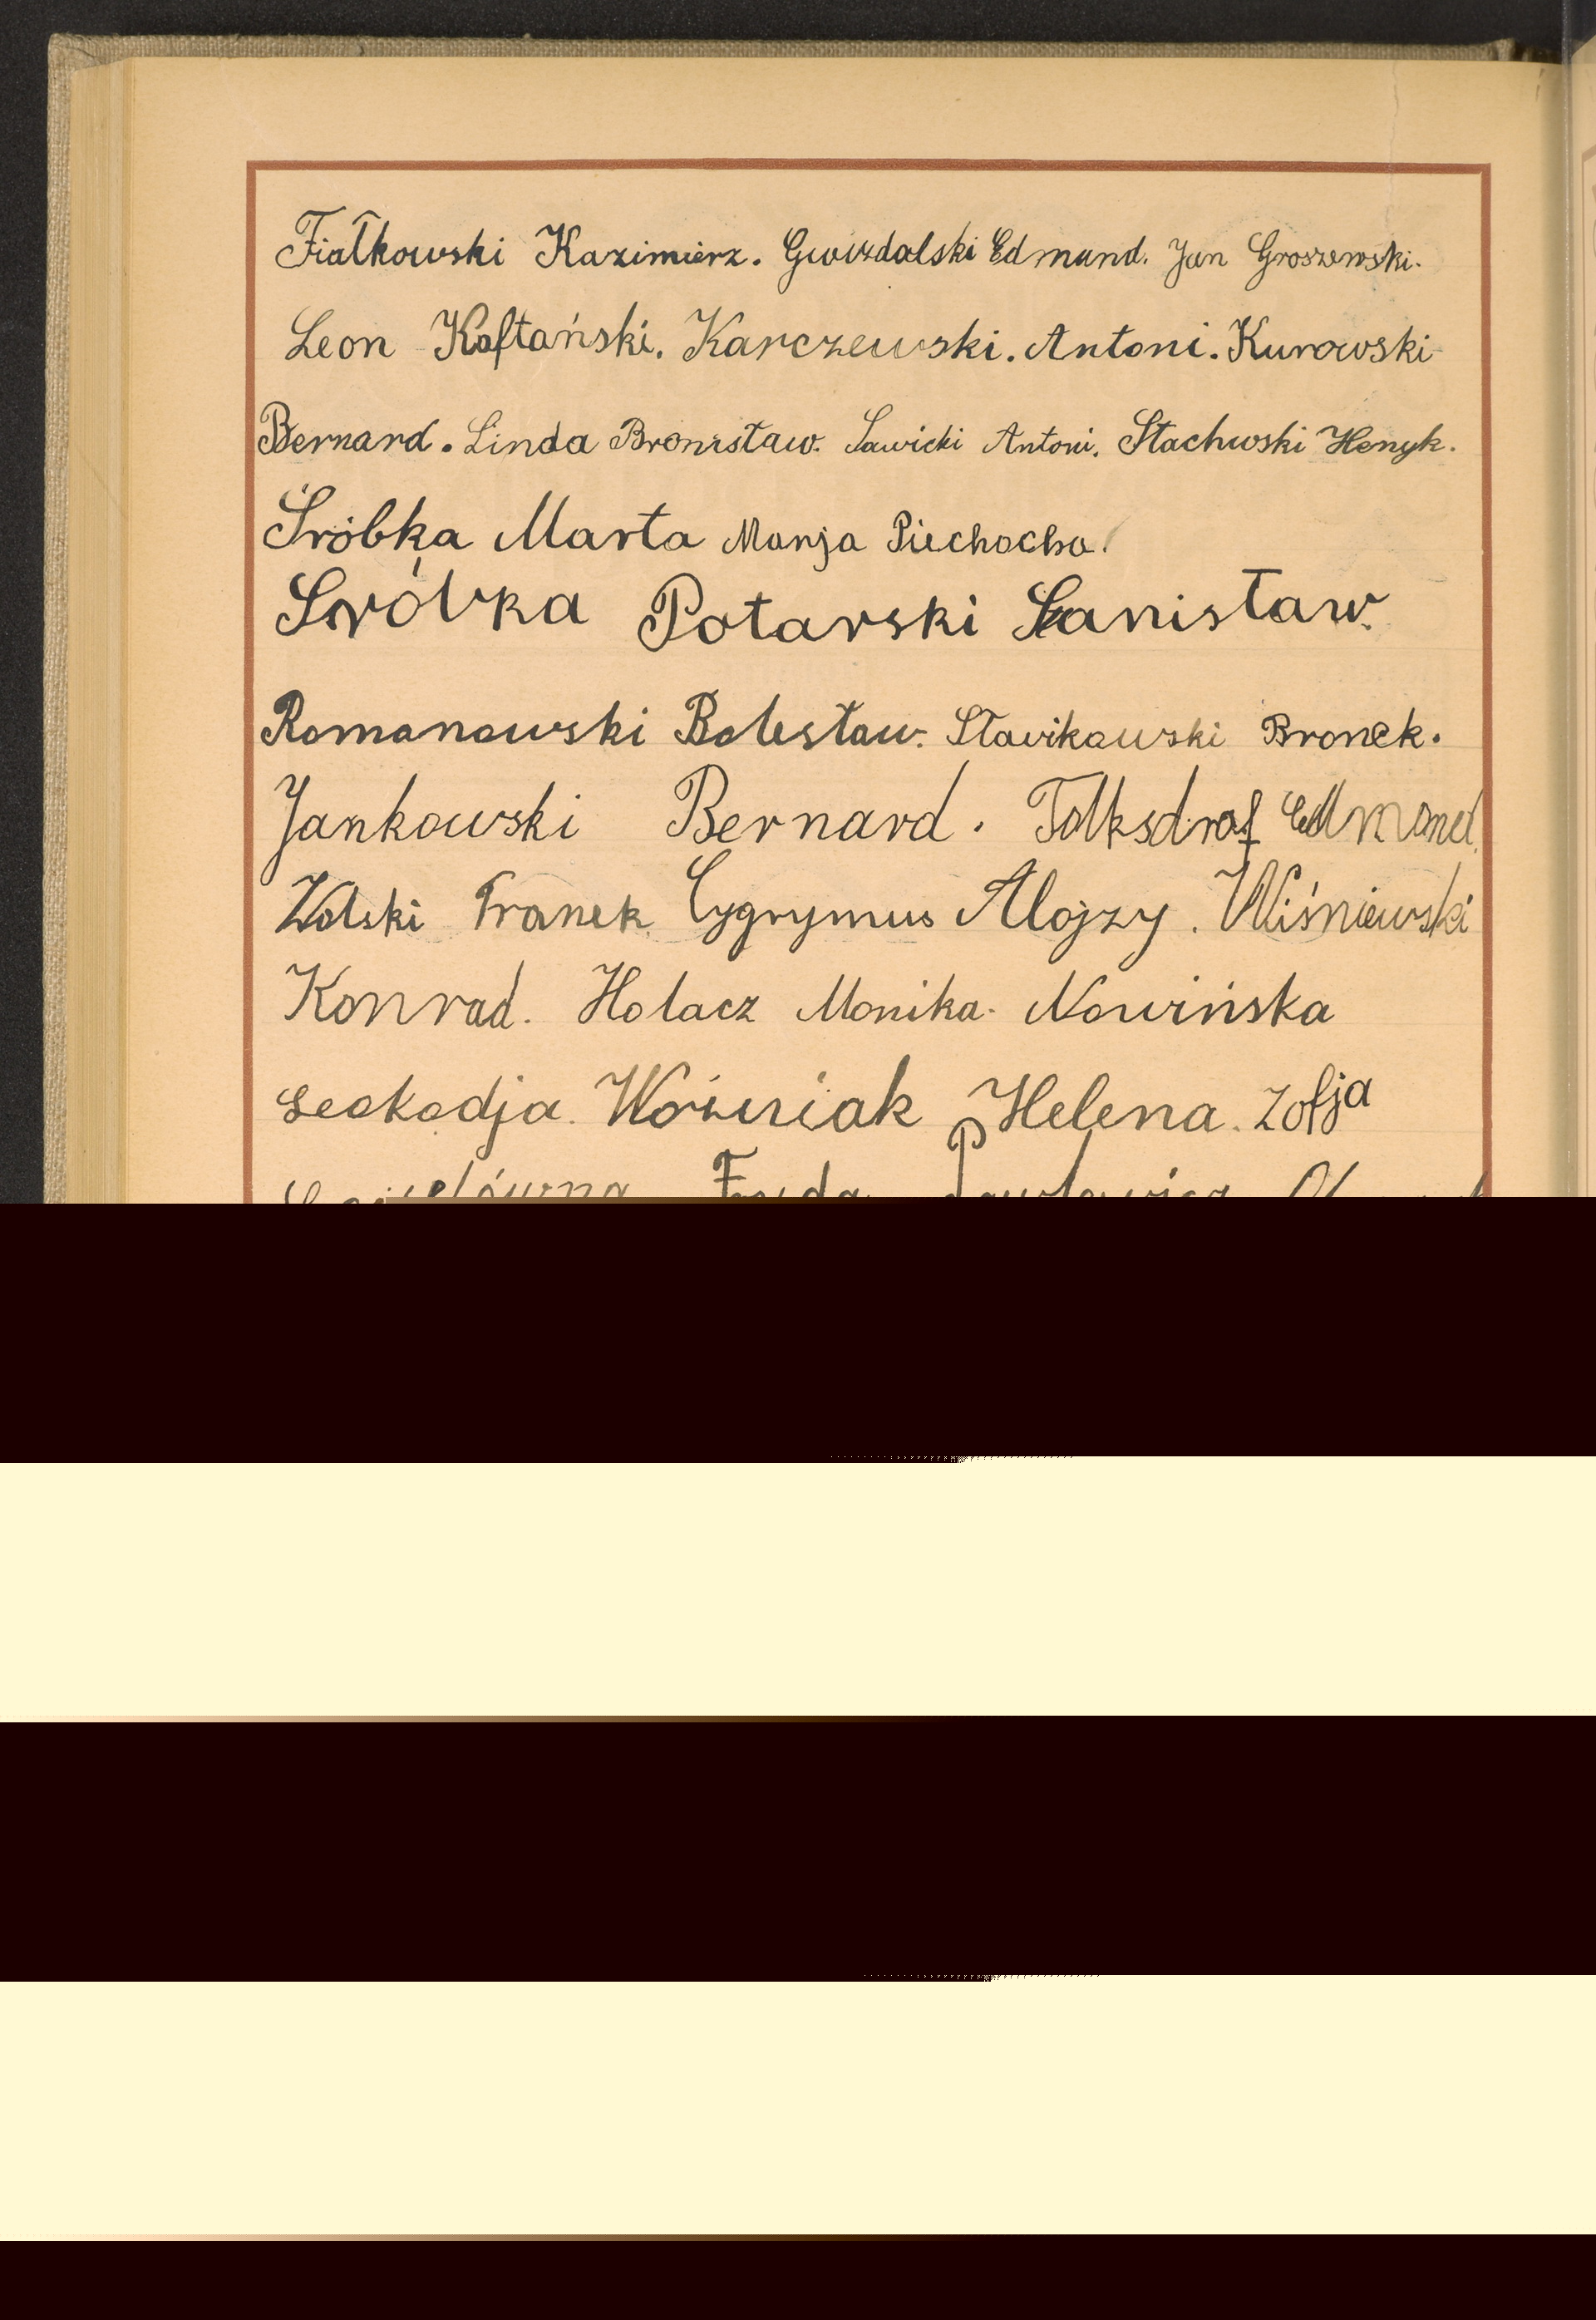 Fiałkowski Kazimierz. Gwizdalski Edmund. Jan Groszewski.
Leon Kaftański. Karczewski. Antoni. Kurowski
Bernard. Linda Bronisław. Sawicki Antoni. Stachwski Henyk.
Śróbka Marta Marja Piechocka.
Sróbka Potarski Stanisław.
Romanowski Bolesław. Stawikowski Bronek.
Jankowski Bernard. Tolksdraf Edmond.
Wolski Franek Cygrymus Alojzy. Wiśniewski
Konrad. Holacz Monika. Nowińska
Leokadja. Woźniak Helena. Zofja